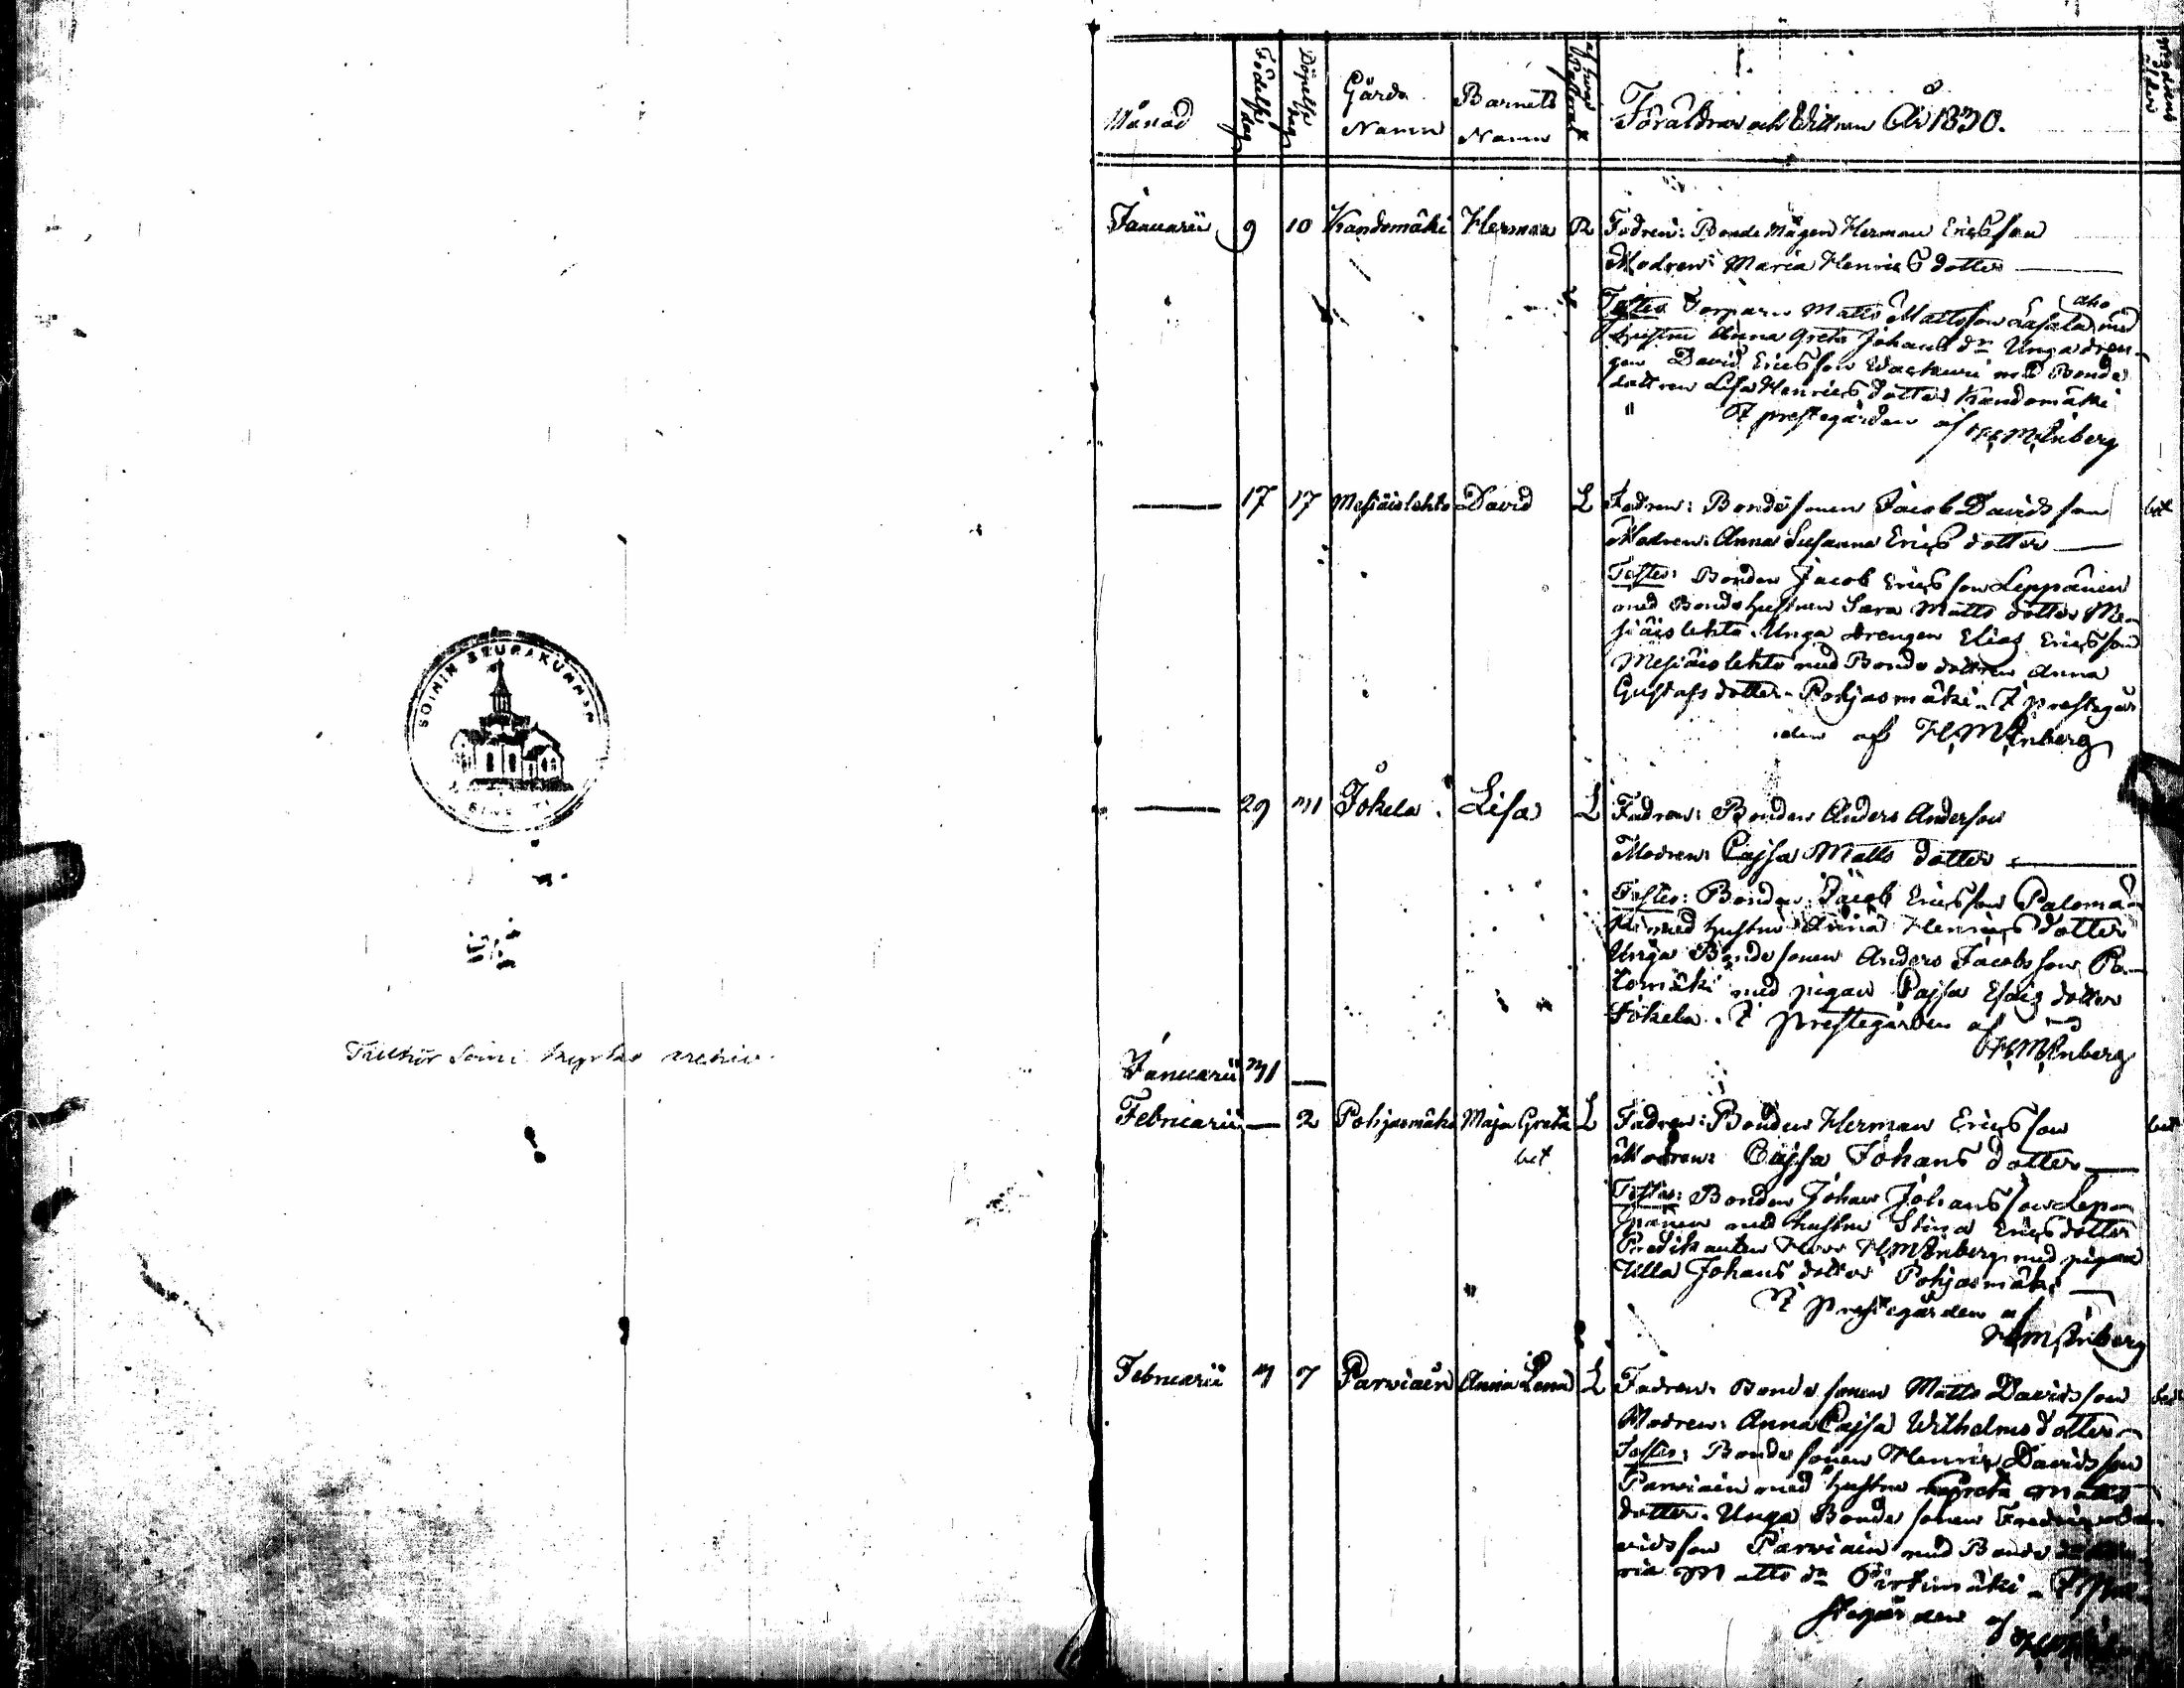 SOININ SEURAKUNNAN
Tillhör Soini kyrkas archiv.
Månad
Födelse dag
Döpelse dag
Gårds Namn
Barnets Namn
Föräldrar och Vittnen År 1830.
Januarii 9 10 Kandomäki Herman R
Fadren: Bonde Mågen Herman Ericsson
Modren: Maria Henrics dotter
Testes Torparn Matts Mattsson aho med
hustru Anna Greta Johans dr Unga dren-
gen David Ericsson med Bonde
dottren Lisa Henrics dotter Kandomäki
I prestegården af H. M. Enberg
17 17 Mesiäislehto David L
Fadren: Bondesonen Jacob Davidsson
bet
Modren: Anna Susanna Erics dotter
Testes: Bonden Jacob Ericsson Leppänen
med Bondehustrun Sara Matts dotter Me-
siäislehto. Unga drengen Elias Ericsson
Mesiäislehto med Bonde dottren Anna
Gustafs dotter Pohjasmäki. I prestegår
den af H. M. Enberg
29 31 Jokela Lisa L
Fadren: Bonden Anders Andersson
Modren: Cajsa Matts dotter
Testes: Bonden Jacob Ericsson Palomä-
ki med hustru Anna Henrics dotter
Unga Bondesonen Anders Jacobsson Pa-
lomäki med pigan Cajsa Esaiæ dotter
Jokela. I prestegården af
H. M. Enberg
Januarii 31
Februarii 2 Pohjasmäki Maja Greta L
bet
Fadren: Bonden Herman Ericsson
bet
Modren: Cajsa Johans dotter
Testes: Bonden Johan Johansson Lep-
pänen med hustru Stina Erics dotter
Predikanten Herr H. M. Enberg med pigan
Ulla Johans dotter Pohjasmäki
I prestegården af
H. M. Enberg
Februarii 3 7 Parviain Anna Lena L
Fadren: Bondesonen Matts Davidsson
Modren: Anna Cajsa Wilhelms dotter
Testes: Bondesonen Henric Davidsson
Parviain med hustru Greta Matts
dotter. Unga Bondesonen Fredric Da-
vidsson Parviain med Bonde
ria Matts dr Pirtimäki. I Pre-
stegården af